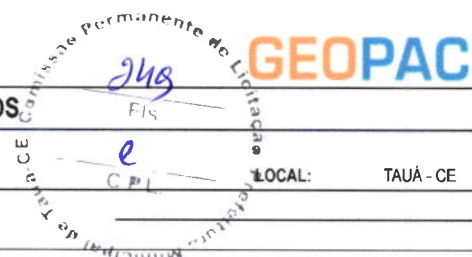 GEOPAC
Comissão Permanente de Licitação
Fls
C P L
Prefeitura Municipal de Tauá-CE
OS
LOCAL: TAUÁ - CE